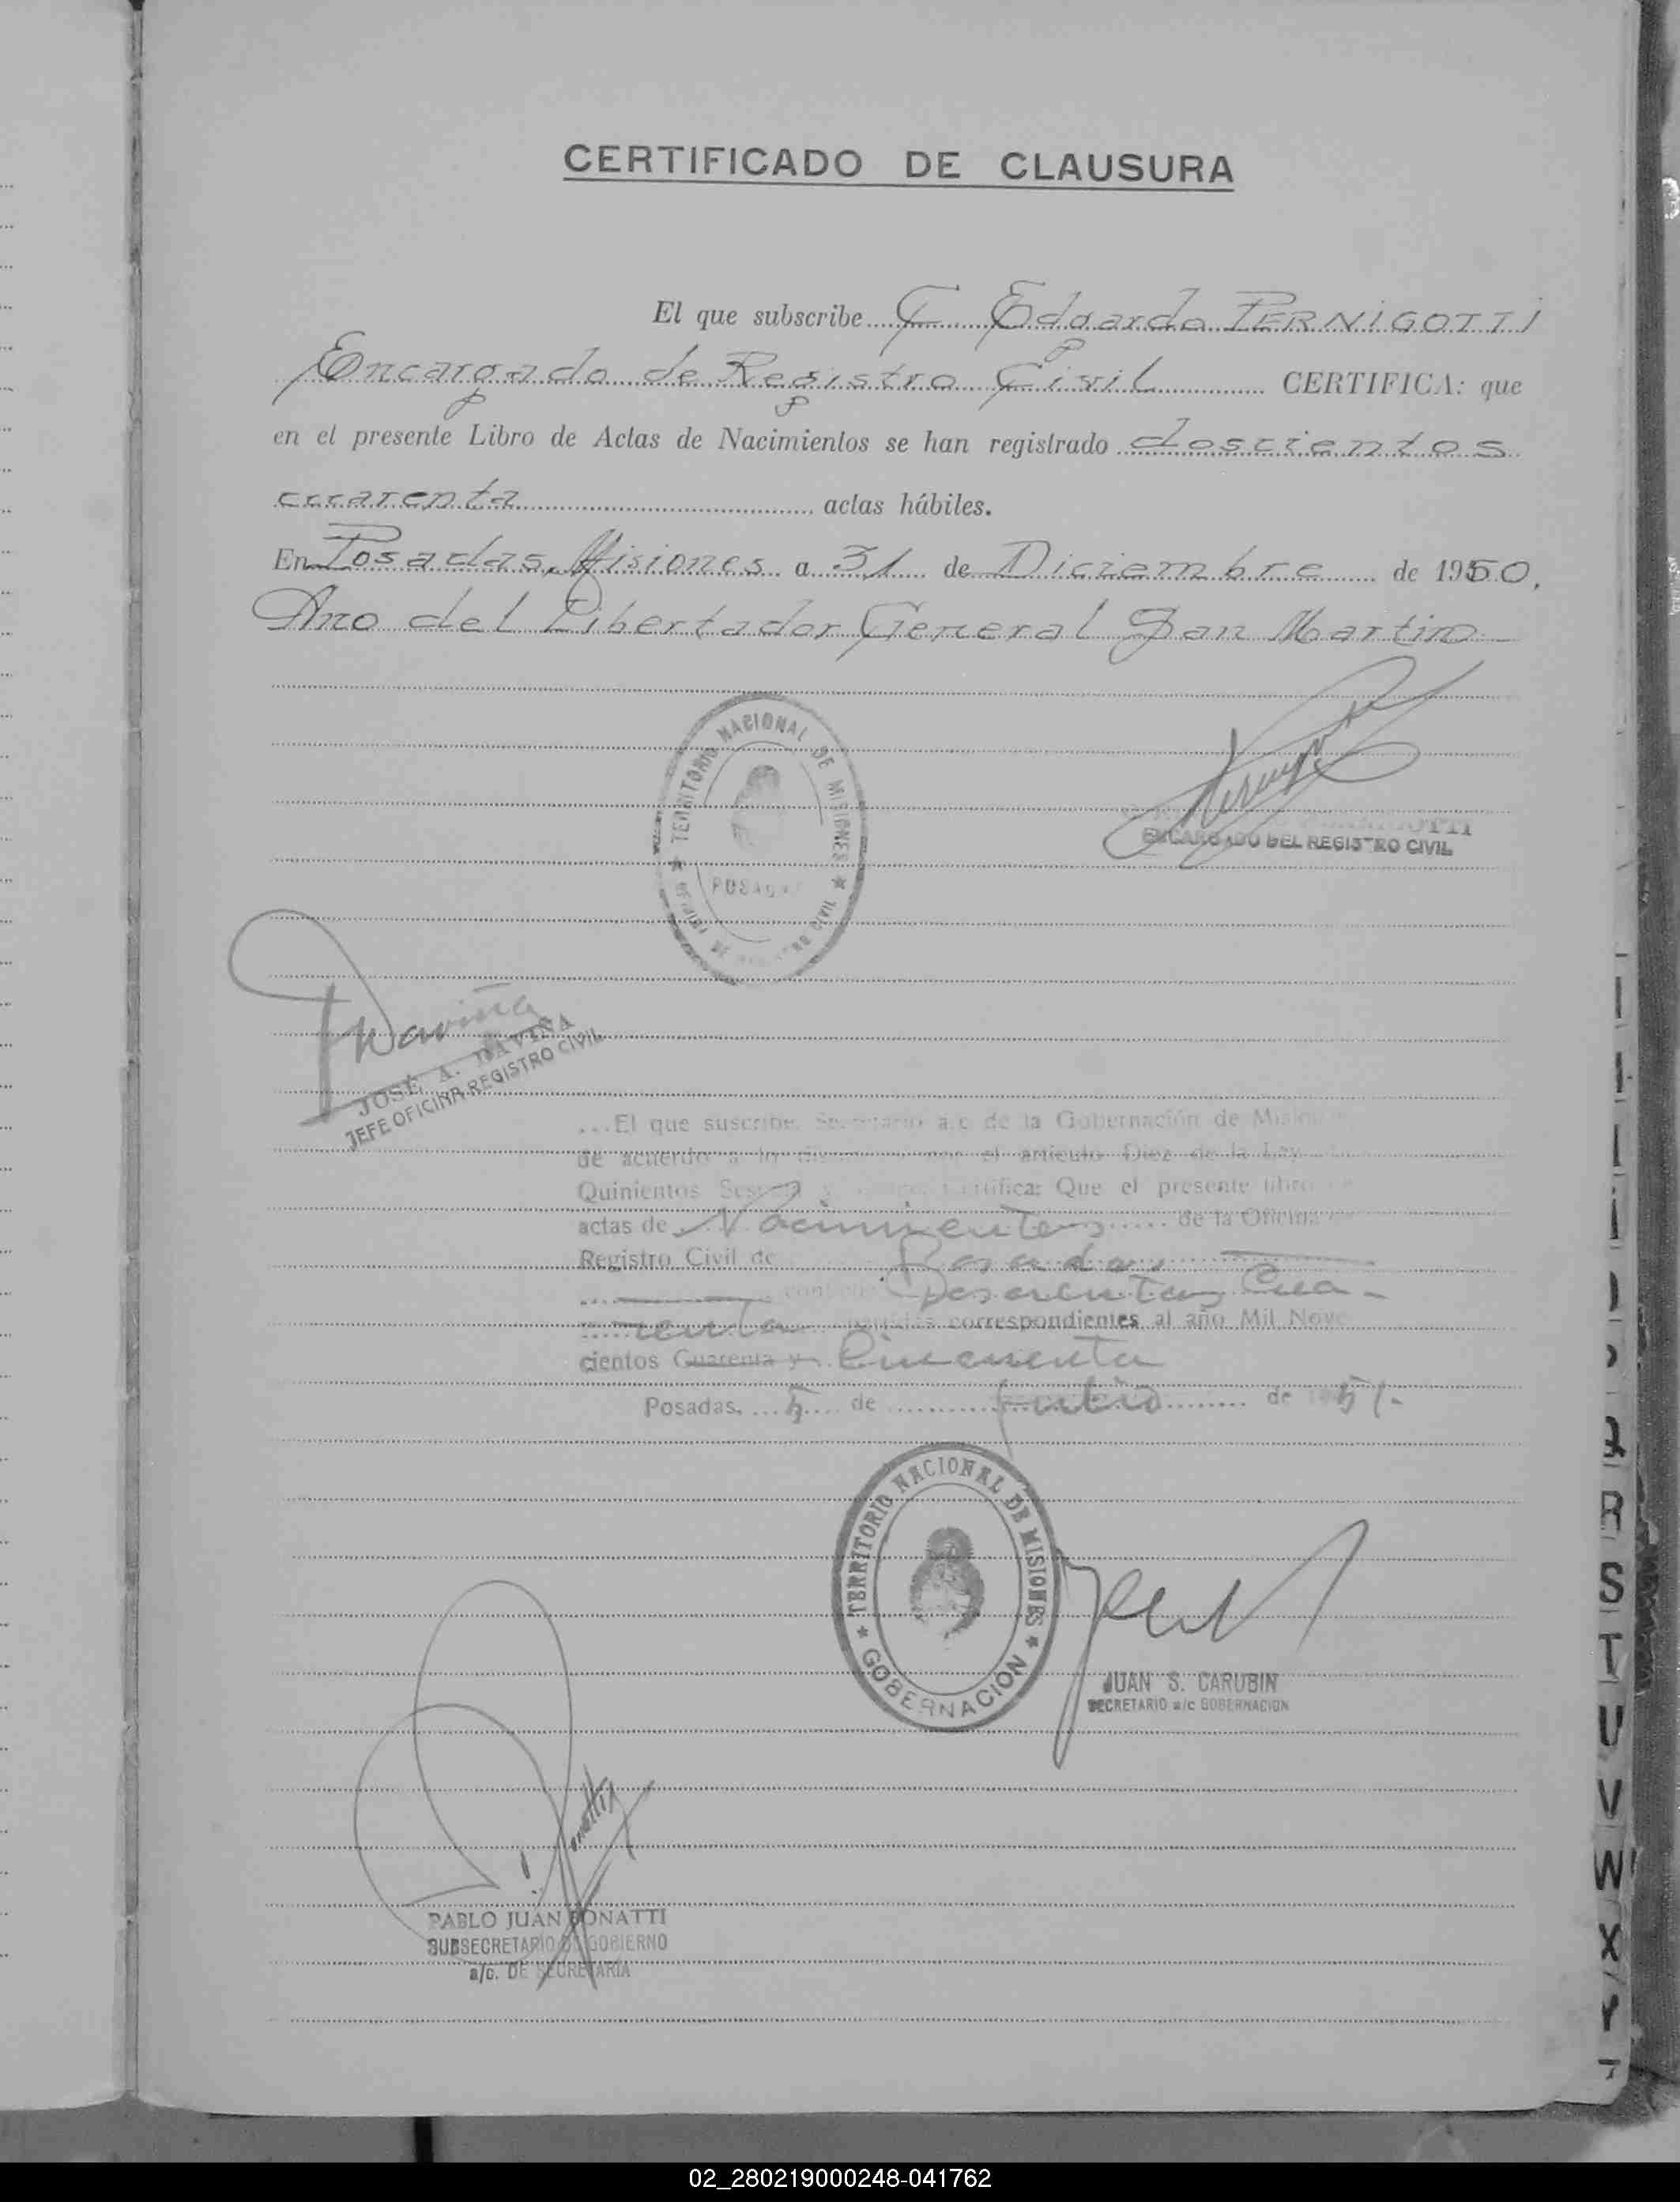 CERTIFICADO DE CLAUSURA
El que subscribe C. Edgardo PERNIGOTTI
Encargado de Registro Civil CERTIFICA: que
en el presente Libro de Actas de Nacimientos se han registrado doscientos
cuarenta actas hábiles.
En Posadas, Misiones a 31 de Diciembre de 1950.
Ano del Libertador General San Martin
TERRITORIO NACIONAL DE MISIONES
POSADAS
ENCARGADO DEL REGISTRO CIVIL
JOSÉ A. DAVIÑA
JEFE OFICINA REGISTRO CIVIL
...El que suscribe, Secretario a.c de la Gobernación de
de acuerdo a lo el artículo Diez de la Ley
Quinientos Certifica: Que el presente libro
actas de Nacimientos de la Oficina
Registro Civil de Posadas
Doscientas Cua-
renta correspondientes al año Mil Nove
cientos Cuarenta y Cincuenta
Posadas, 5 de Julio de 1951.
TERRITORIO NACIONAL DE MISIONES
GOBERNACION
JUAN S. CARUBIN
SECRETARIO a/c GOBERNACION
PABLO JUAN BONATTI
SUBSECRETARIO DE GOBIERNO
a/c. DE SECRETARIA
R
S
T
U
V
W
X
Y
02_280219000248-041762